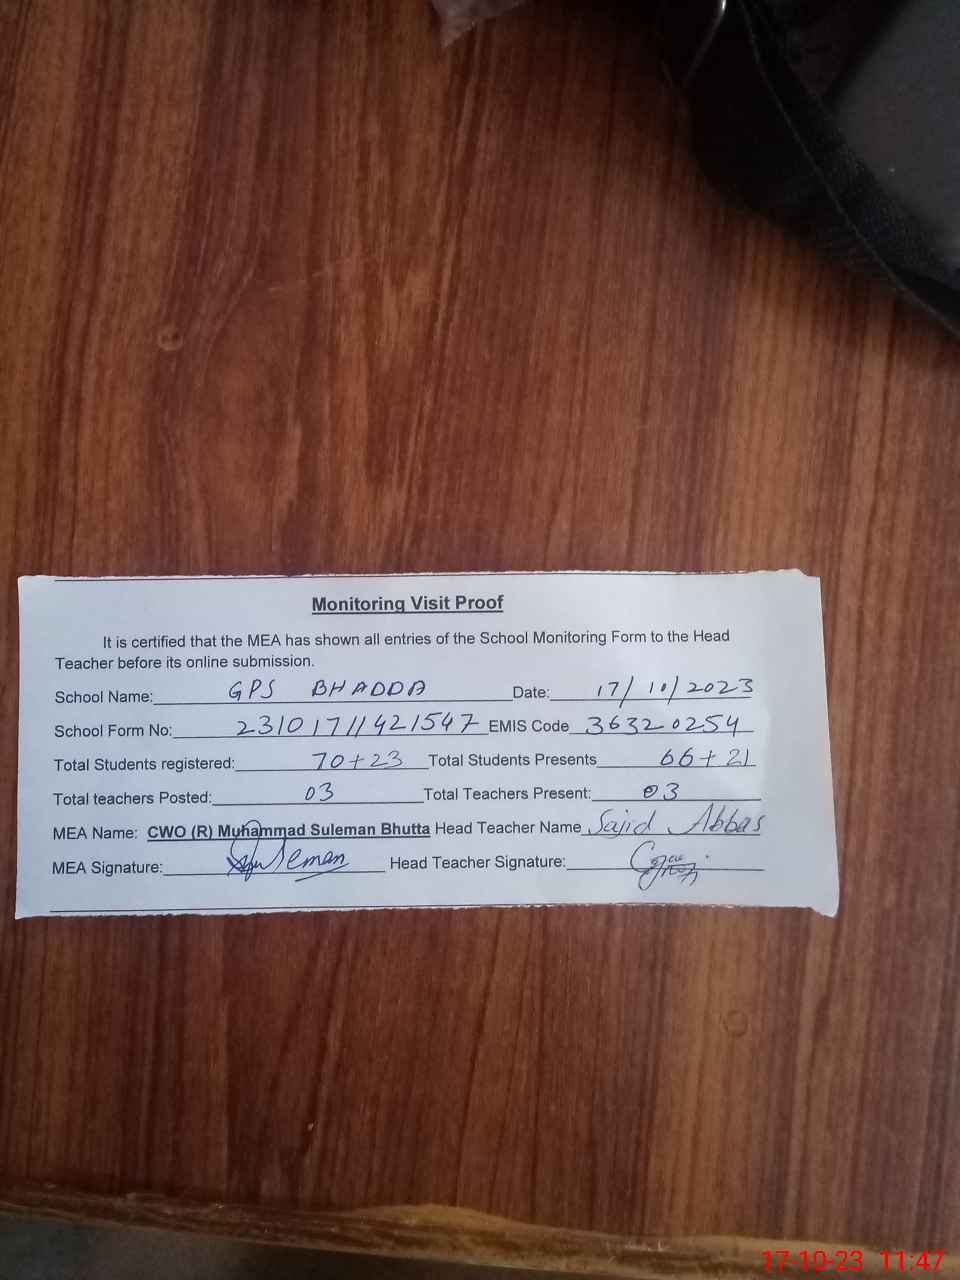 Monitoring Visit Proof
It is certified that the MEA has shown all entries of the School Monitoring Form to the Head
Teacher before its online submission.
School Name: GPS BHADDA Date: 17/10/2023
School Form No: 23101711421547 EMIS Code 36320254
Total Students registered: 70+23 Total Students Presents 66+21
Total teachers Posted: 03 Total Teachers Present: 03
MEA Name: CWO (R) Muhammad Suleman Bhutta Head Teacher Name Sajid Abbas
MEA Signature: Suleman Head Teacher Signature:
17-10-23 11:47